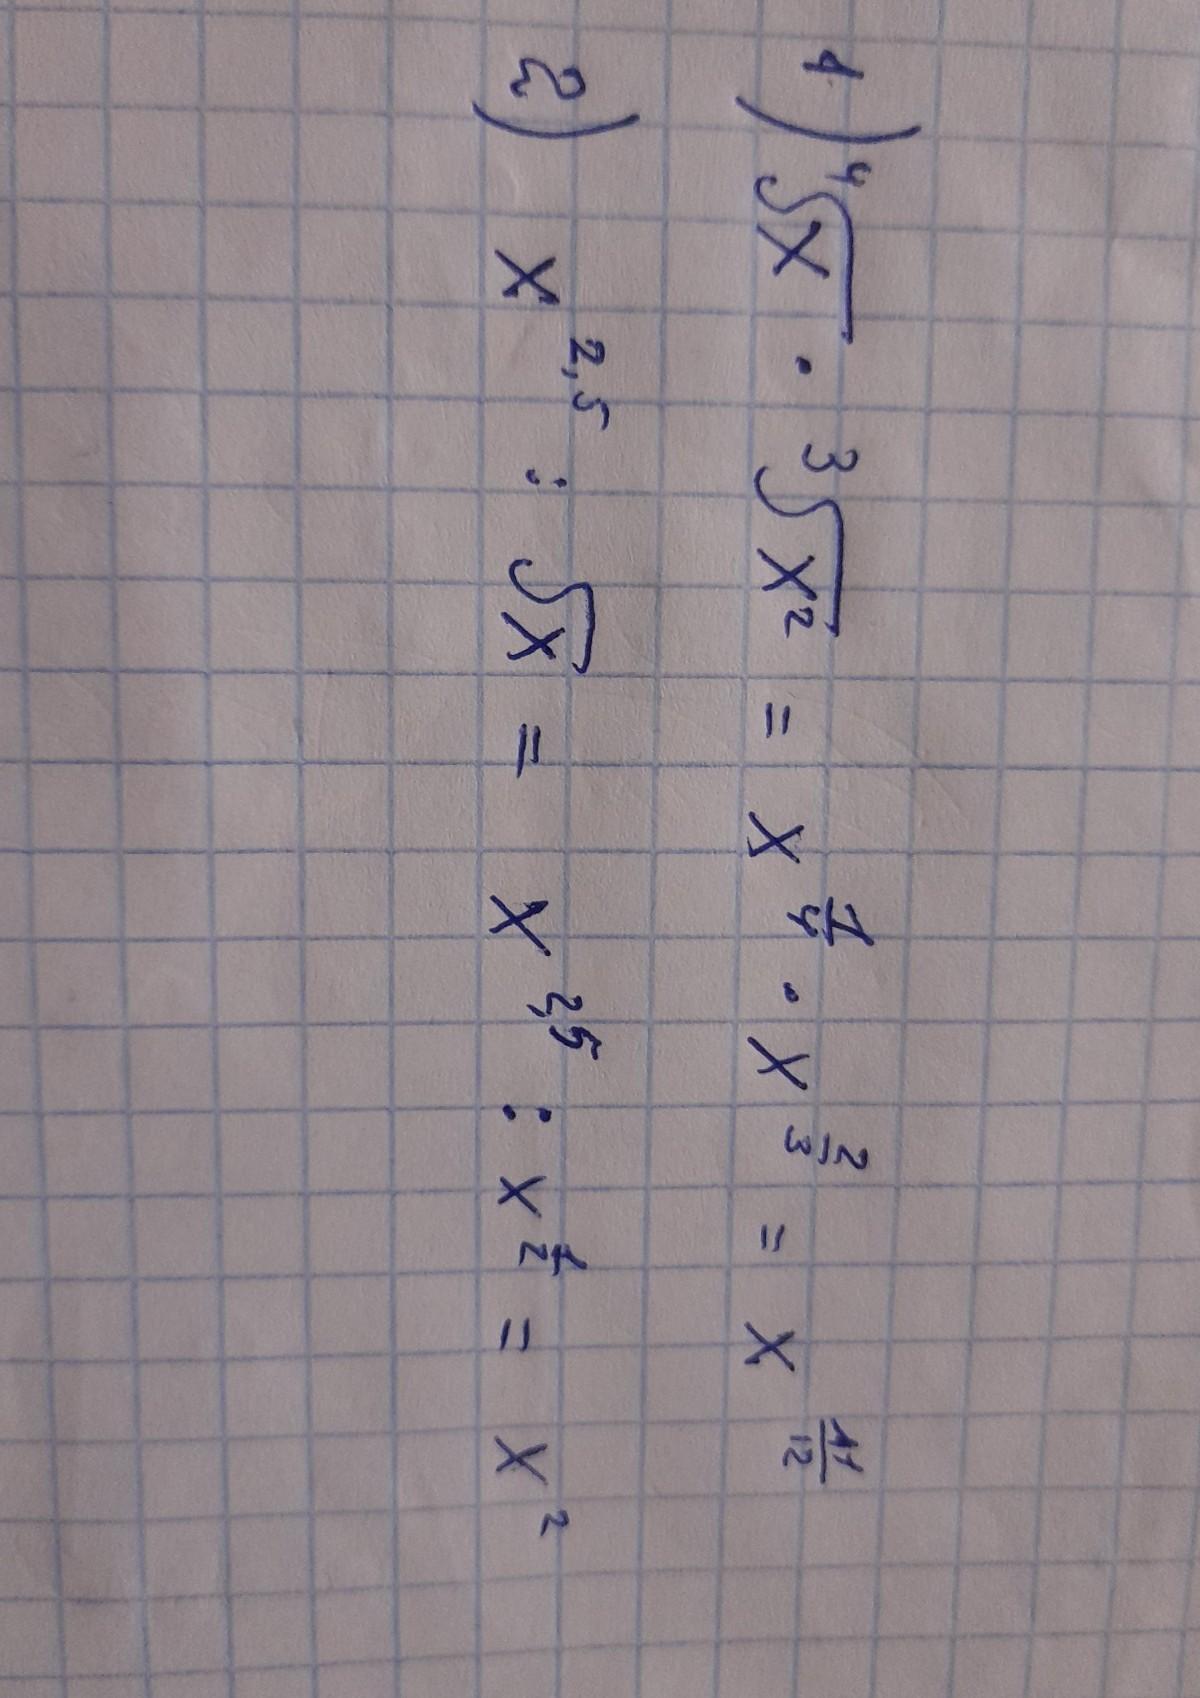 1) ⁴√x · ³√x² = x^(1/4) · x^(2/3) = x^(11/12)
2) x^2,5 : √x = x^2,5 : x^(1/2) = x²